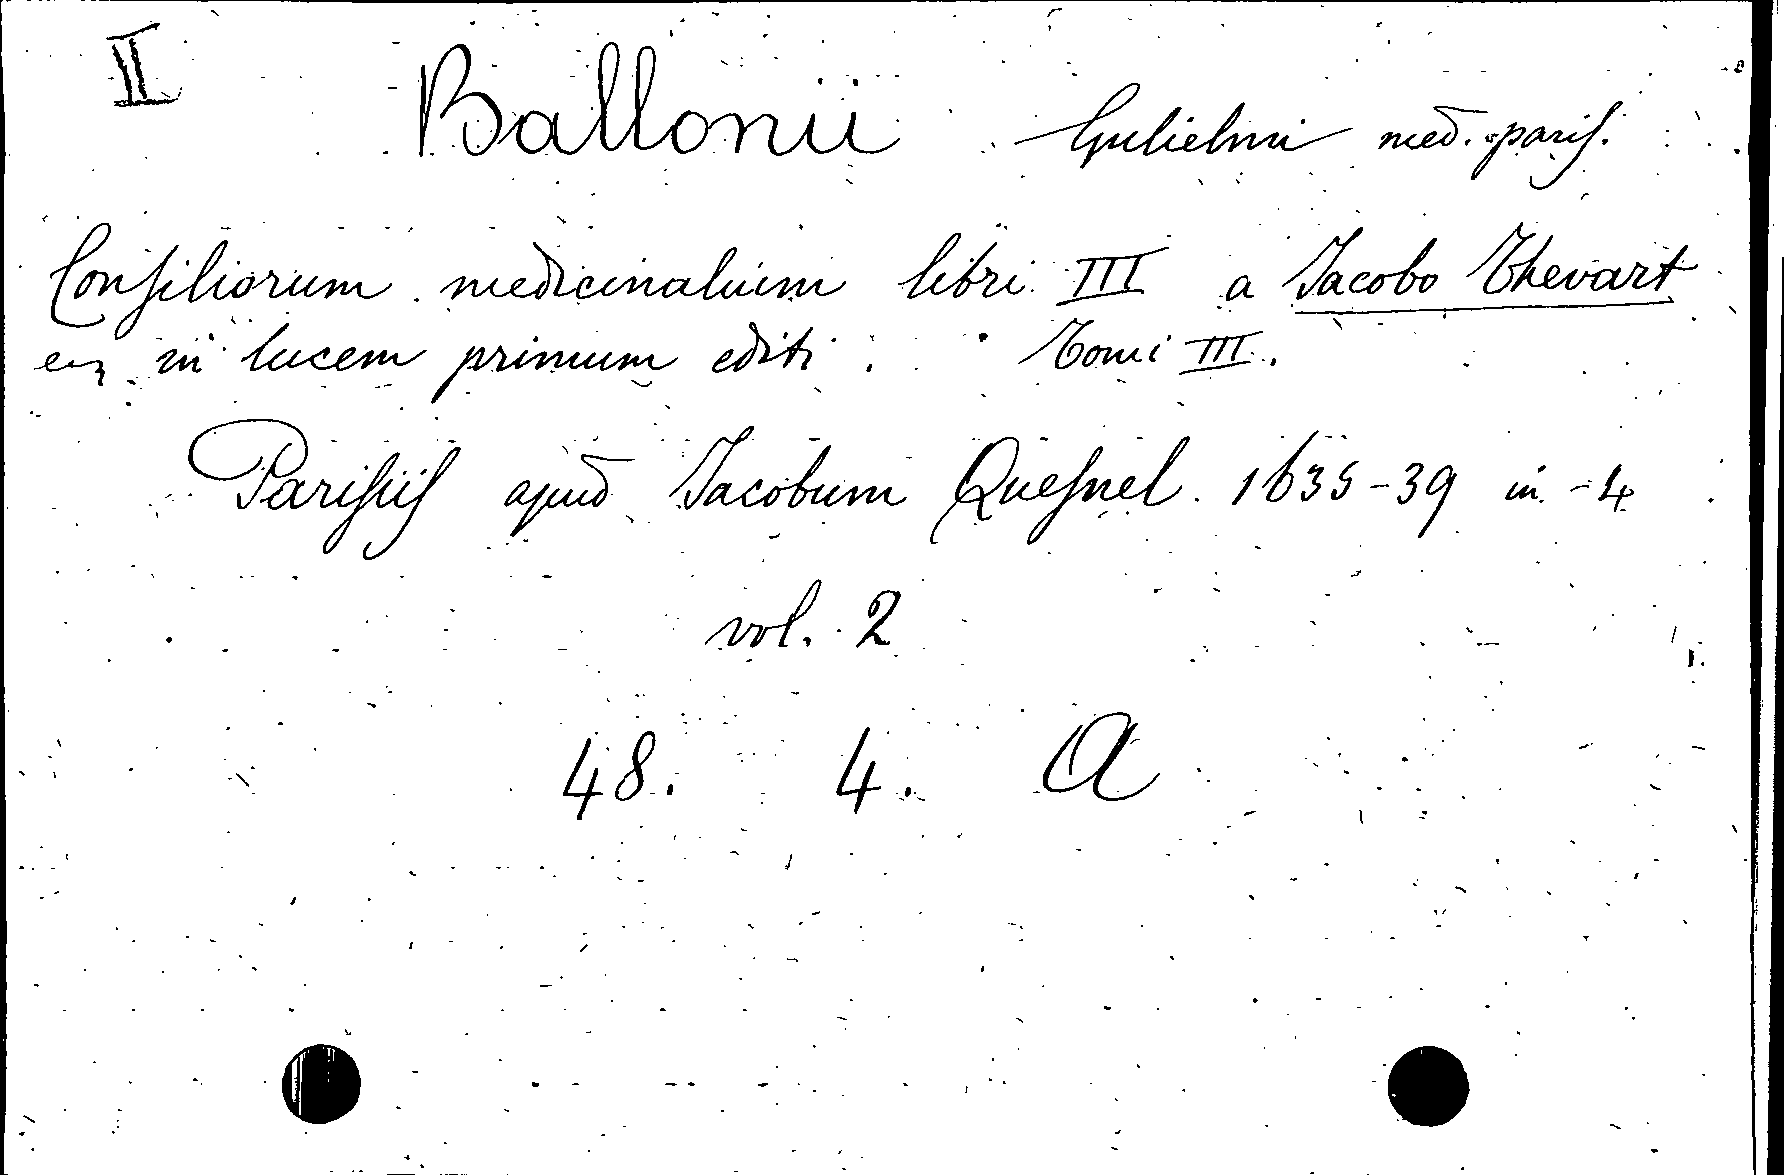 II
Ballonii Gulielmi med. paris.
Consiliorum medicinalium libri III a Jacobo Thevart
in lucem primum editi. Tomi III.
Parisiis apud Jacobum Quesnel. 1635-39 in-4
vol. 2
48. 4. A